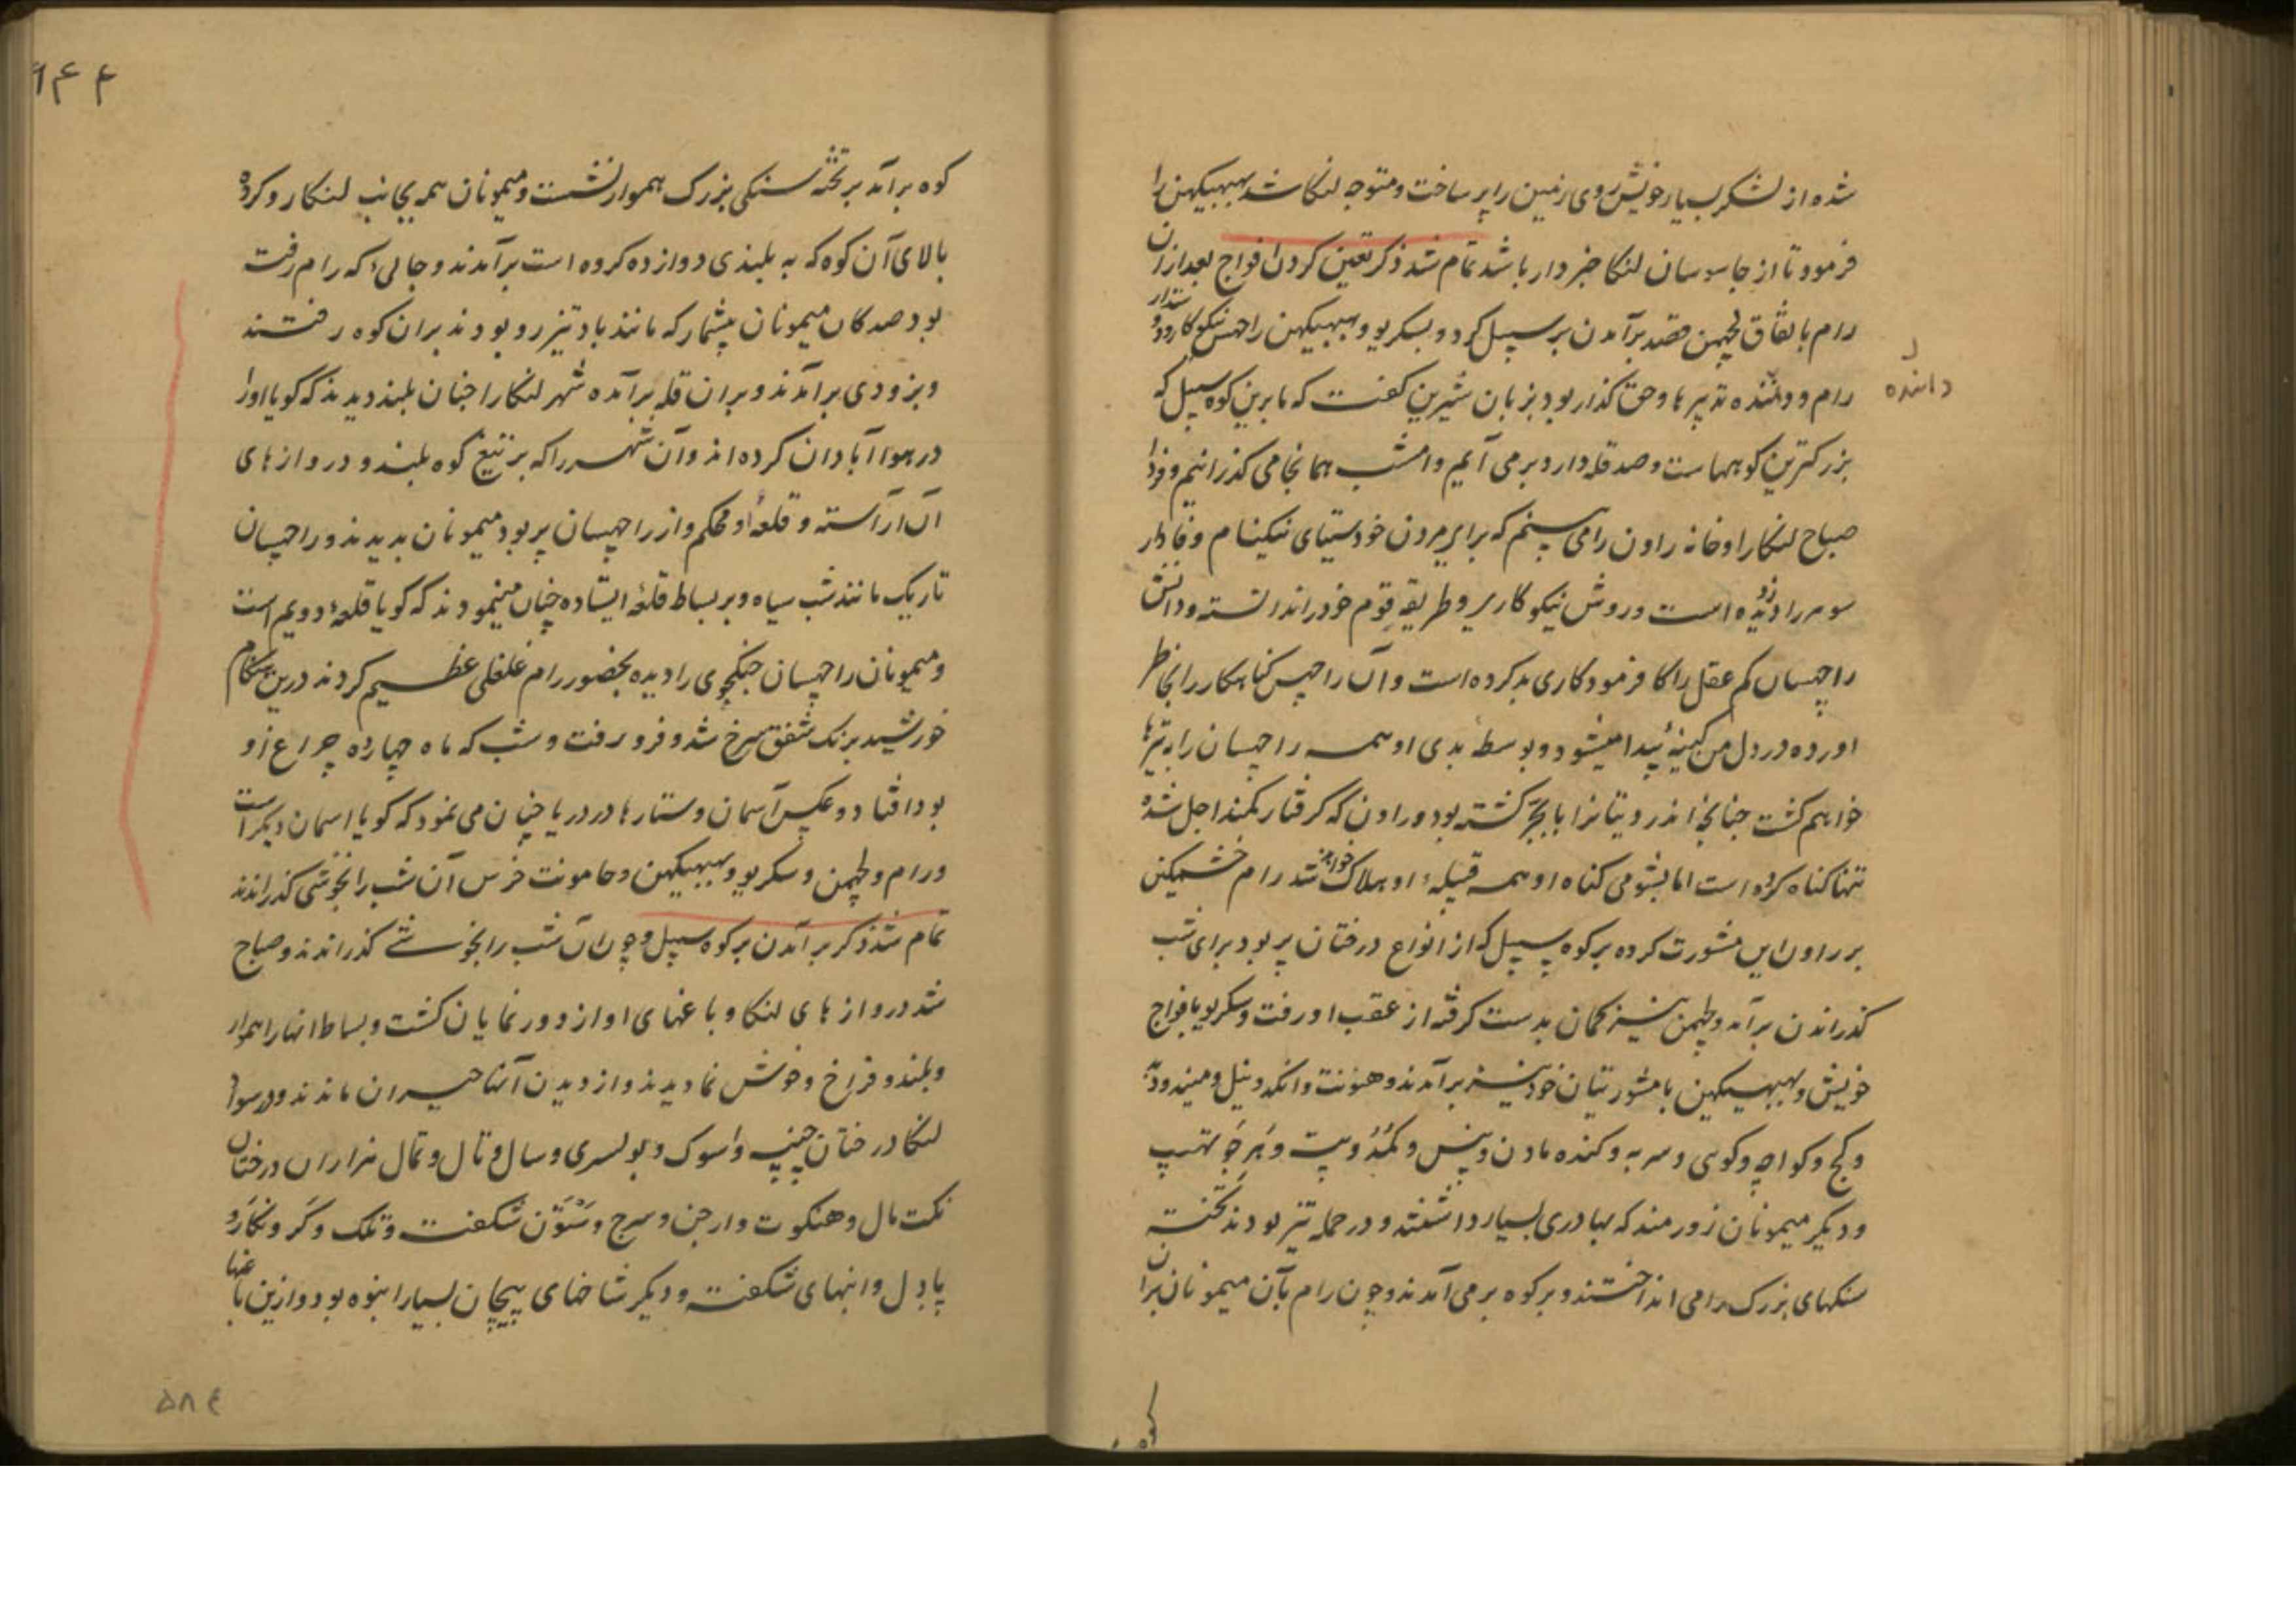 شده از لشکر بسیار خویش روی زمین را پر ساخت و متوجه لنکا شد ببهیکهن را
فرمود تا از جاسوسان لنکا خبردار باشد تمام شد ذکر تعین کردن افواج بعد ازان
رام باتفاق لچهمن قصد برآمدن بر سپیل کرد و بسکریو و ببهیکهن راچهس نیکوکار و دوستدار
رام و داننده تدبیرها و حق گذار بود بزبان شیرین کفت که ما برین کوه سپیل که
داننده
بزرکترین کوههاست و صد قله دارد برمی آئیم و امشب همانجا می کذرانیم و فردا
صباح لنکا را و خانه راون را می بینیم که برای مردن خود سیتای نیکنام وفادار
سومرا دزدیده است و روش نیکوکاری و طریقه قوم خود را ندانسته و دانش
راچهسان کم عقل را کا فرمود کاری بد کرده است و آن راچهس کناهکار را بخاطر
اورده در دل من کینهٔ پیدا میشود و بوسطهٔ بدی او همه راچهسان را به تیرها
خواهم کشت چنانچه اندر دیتانرا با بجر کشته بود و راون که کرفتار کمند اجل شده
تنها کناه کرده است اما بشومی کناه او همه قبیلهٔ او هلاک خواهند شد رام خشمکین
بر راون این مشورت کرده بر کوه سپیل که از انواع درختان پر بود برای شب
کذراندن برآمد و لچهمن نیز کمان بدست کرفته از عقب او رفت و سکریو با فواج
خویش و ببهیکهن با مشورتیان خود نیز برآمدند و هنونت و انکد و نیل و میند و دبد
و کج و کواچه و کوی و سربه و کنده مادن و پنس و کمد و پت و هرجو بتهپ
و دیکر میمونان زورمند که بهادری بسیار داشتند و در حمله تیز بودند تخته
سنکهای بزرک را می انداختند و بر کوه برمی آمدند و چون رام بآن میمونان بران
کوه
۱۴۴
کوه برآمد بر تخته سنکی بزرک هموار نشست و میمونان همه بجانب لنکا رو کرده
بالای آن کوه که به بلندی دوازده کروه است برآمدند و جائیکه رام رفت
بود صدکان میمونان بیشمار که مانند باد تیزرو بودند بران کوه رفتند
و بزودی برآمدند و بران قله برآمده شهر لنکا را چنان بلند دیدند که کویا او را
در هوا آبادان کرده اند و آن شهر را که بر تیغ کوه بلند و دروازهای
آن آراسته و قلعهٔ او محکم و از راچهسان پر بود میمونان بدیدند و راچهسان
تاریک مانند شب سیاه و بر بساط قلعه ایستاده چنان مینمودند که کویا قلعهٔ دویم است
و میمونان راچهسان جنکجوی را دیده بحضور رام غلغلی عظیم کردند درین هنکام
خورشید برنک شفق سرخ شد و فرو رفت و شب که ماه چهارده چراغ او
بود افتاد و عکس آسمان و ستارها در دریا چنان می نمود که کویا اسمان دیکر است
و رام و لچهمن و سکریو و ببهیکهن و جامونت خرس آن شب را بخوشی کذراندند
تمام شد ذکر برآمدن بر کوه سپیل و چون آن شب را بخوشی کذراندند و صباح
شد دروازهای لنکا و باغهای او از دور نمایان کشت و بساط انها را هموار
و بلند و فراخ و خوش نما دیدند و از دیدن آنها حیران ماندند و در سواد
لنکا درختان چنپه و اسوک و بولسری و سال و تال و تمال هزاران درختان
نکت مال و هنکوت و ارجن و سرج و ستون شکفته و تلک و کر و نکارو
پادل و انبهای شکفته و دیکر شاخهای پیچان بسیار انبوه بود و ازین باغها
۵۸۴